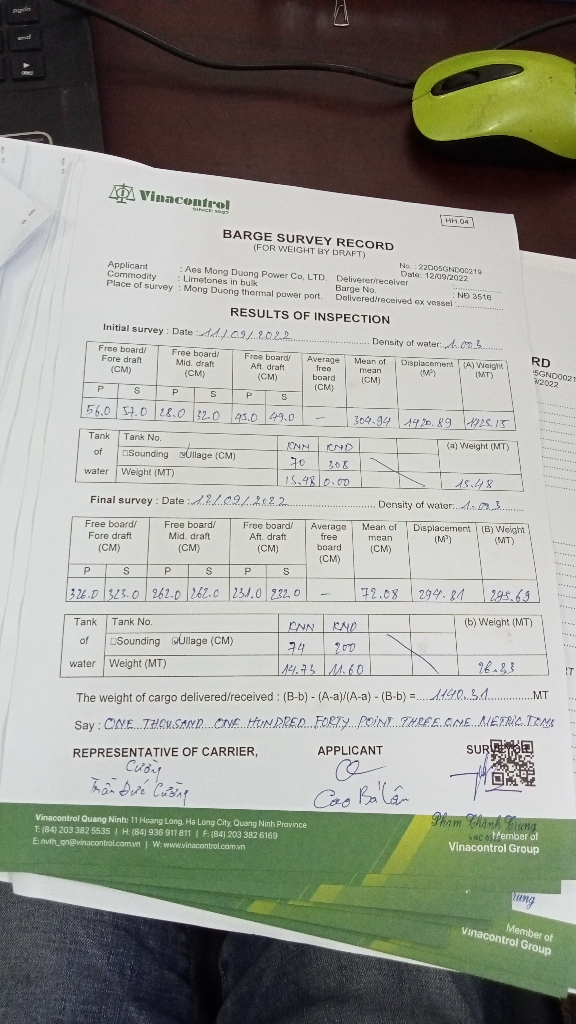 Vinacontrol
SINCE 1957
HH.04
BARGE SURVEY RECORD
(FOR WEIGHT BY DRAFT)
No. : 22D05GND00219
Date: 12/09/2022
Applicant : Aes Mong Duong Power Co, LTD. Deliverer/receiver
Commodity : Limetones in bulk Barge No. : NĐ 3516
Place of survey : Mong Duong thermal power port. Delivered/received ex vessel
RESULTS OF INSPECTION
Initial survey : Date : 11/09/2022 Density of water: 1.003
Free board/ Fore draft (CM) Free board/ Mid. draft (CM) Free board/ Aft. draft (CM) Average free board (CM) Mean of mean (CM) Displacement (M³) (A) Weight (MT)
P S P S P S
56.0 57.0 28.0 32.0 45.0 49.0 - 304.94 1420.89 1425.15
Tank of water Tank No. KNN KND (a) Weight (MT)
Sounding Ullage (CM) 70 308
Weight (MT) 15.48 0.00 15.48
Final survey : Date : 12/09/2022 Density of water: 1.003
Free board/ Fore draft (CM) Free board/ Mid. draft (CM) Free board/ Aft. draft (CM) Average free board (CM) Mean of mean (CM) Displacement (M³) (B) Weight (MT)
P S P S P S
326.0 323.0 262.0 262.0 231.0 232.0 - 72.08 294.81 295.69
Tank of water Tank No. KNN KND (b) Weight (MT)
Sounding Ullage (CM) 74 200
Weight (MT) 14.73 11.60 26.33
The weight of cargo delivered/received : (B-b) - (A-a)/(A-a) - (B-b) = 1140.31 MT
Say : ONE THOUSAND ONE HUNDRED FORTY POINT THREE ONE METRIC TONS
REPRESENTATIVE OF CARRIER, APPLICANT SUR
Cường
Trần Đức Cường Cao Bá Lân
Phạm Thành Trung
Vinacontrol Quang Ninh: 11 Hoang Long, Ha Long City, Quang Ninh Province
T: (84) 203 382 5535 | H: (84) 936 911 811 | F: (84) 203 382 6169
E: nvth_qn@vinacontrol.com.vn | W: www.vinacontrol.com.vn
Member of
Vinacontrol Group
rung
Member of
Vinacontrol Group
RD
5GND0021
9/2022